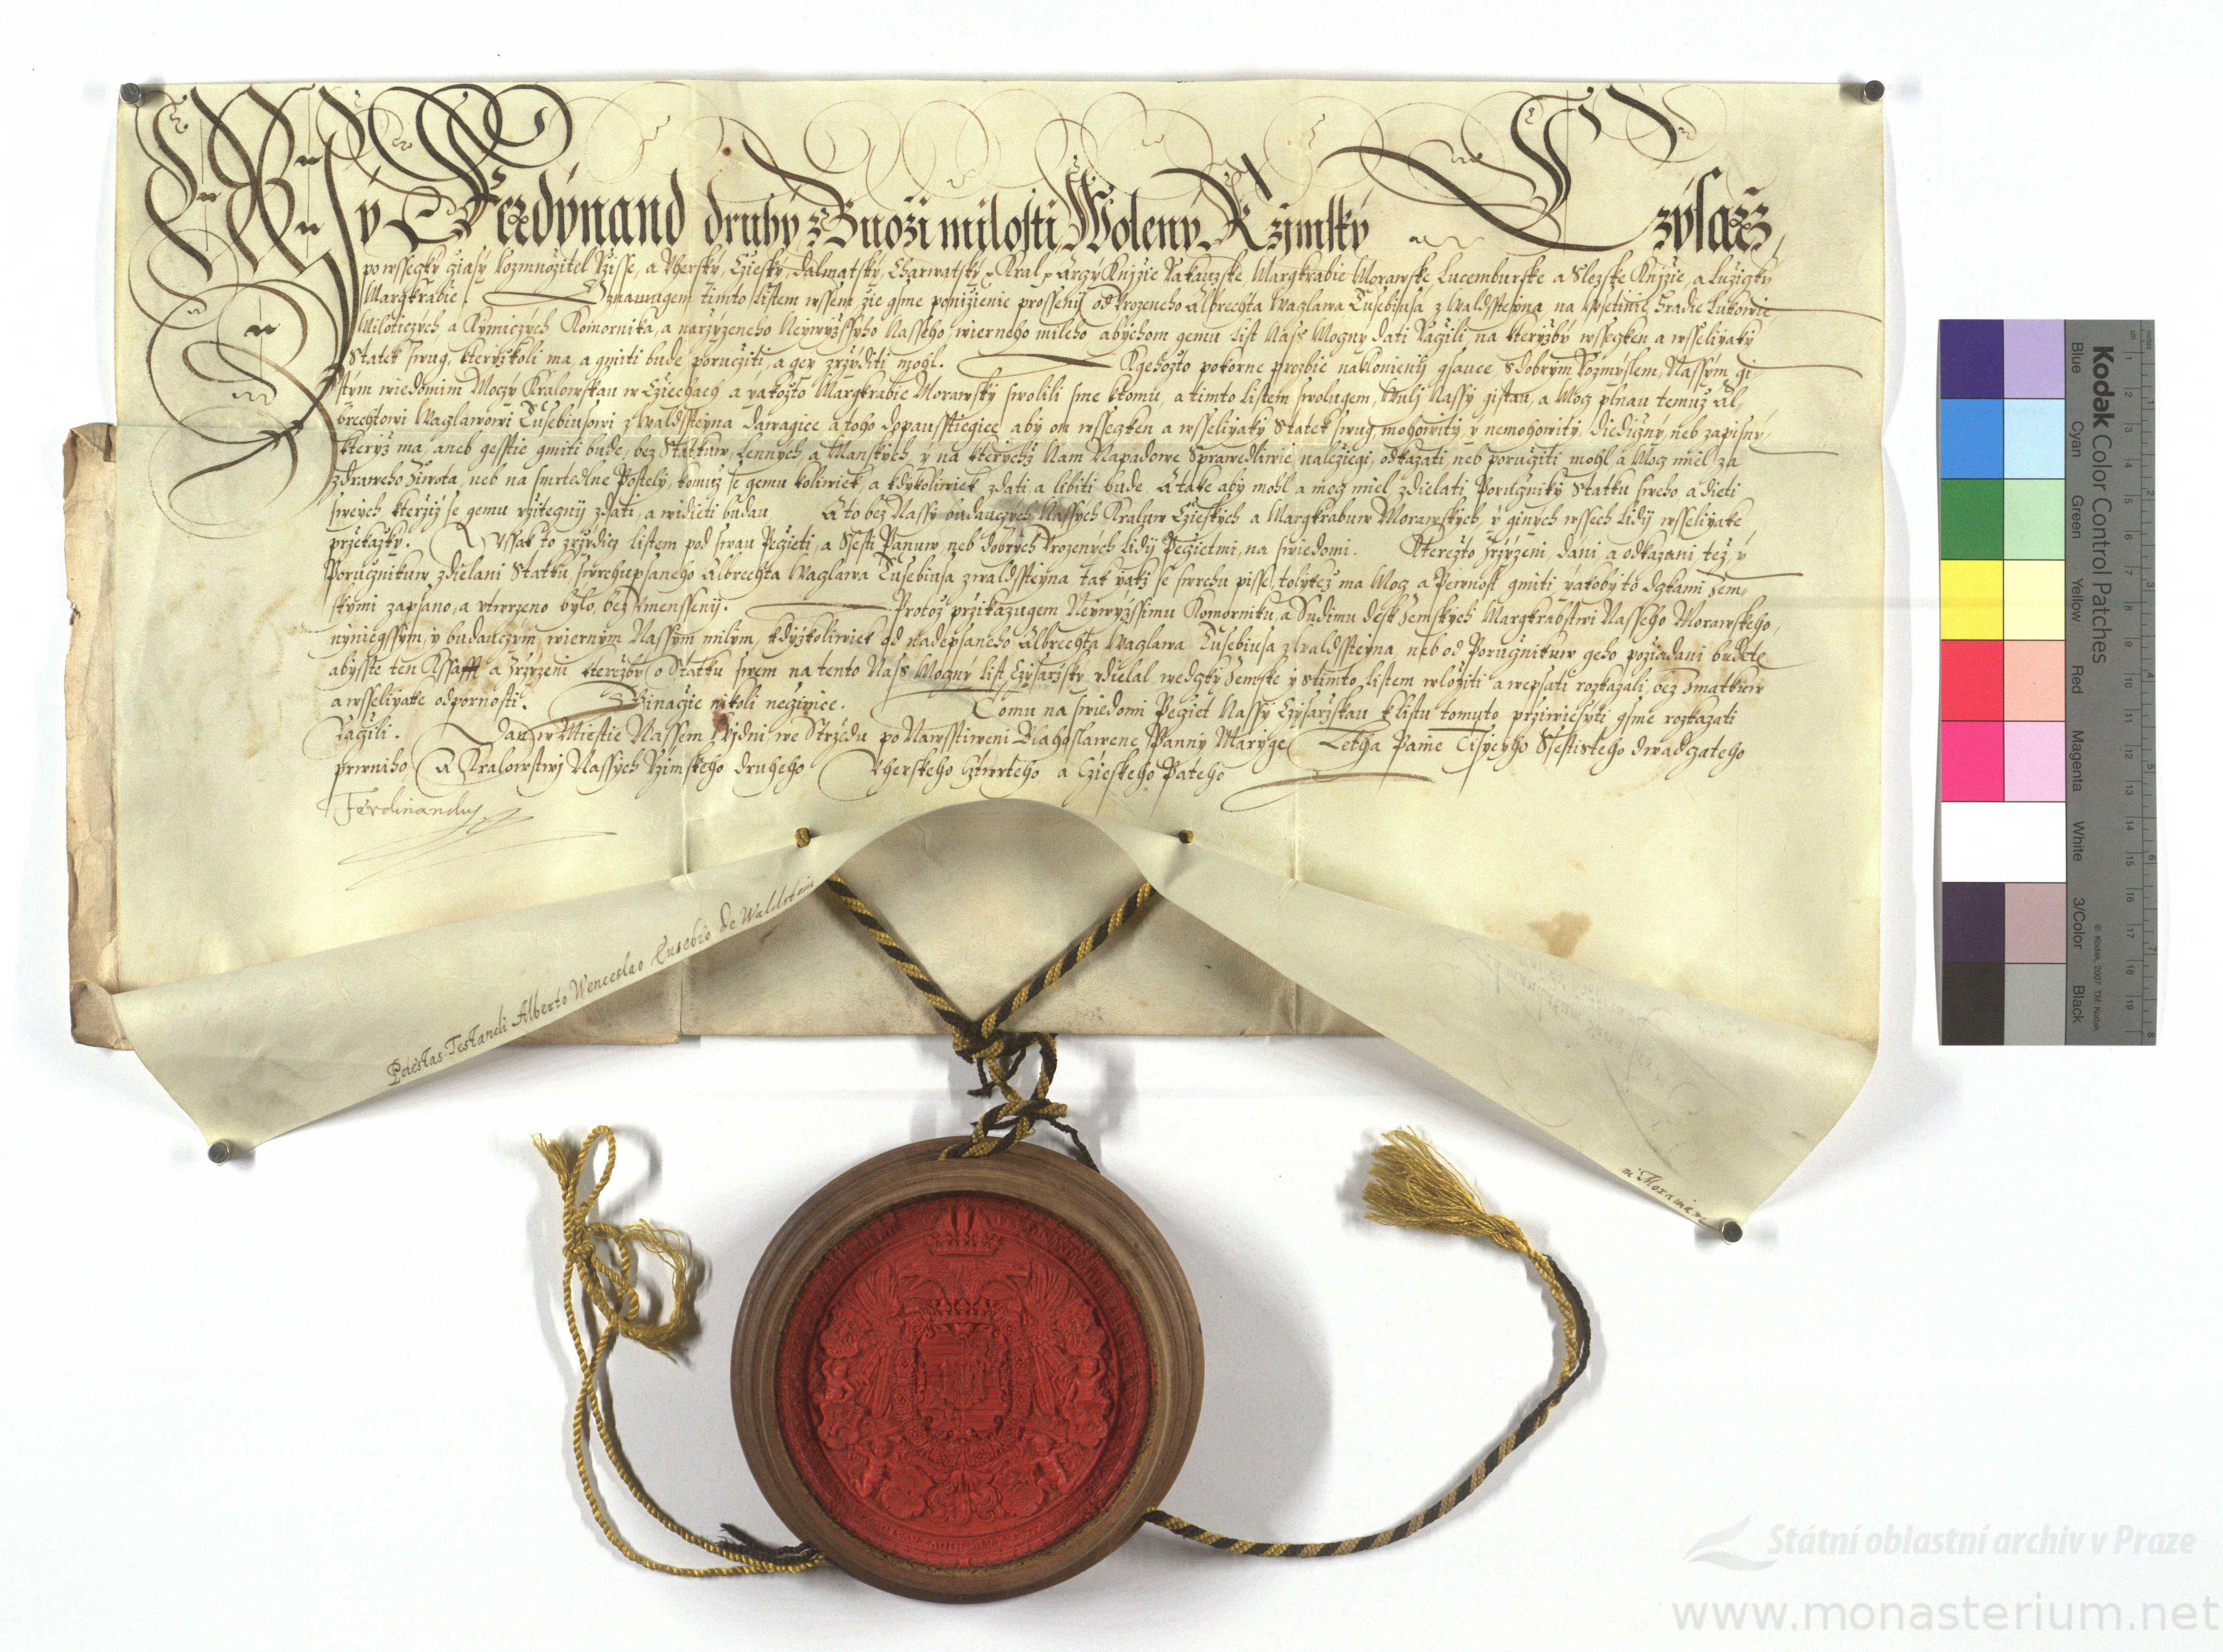 My Ferdynand druhý z Buoži milosti Woleny Ržimský Czysarž,
po wssegky cžiasy Rozmnožitel Ržisse, a Vhersky, Cžesky, Dalmatský, Charwatský, Kral, Arczy Knjžie Rakauzske, Margkrabie Morawske, Lucemburske a Slezske Knjžie, a Lužigky
Margkrabie. Oznamugem timto Listem wssem, žie gsme ponižienie prosseny od Vrozeneho Albrechta Waczlawa Eusebiusa z Waldsstegna na Wsetinie, Hradie Lukowie,
Miloticzých a Rymiczých Komornika, a narzyzeneho Neywyžssyho Nasseho, wierneho mileho abychom gemu List Náss Moczny dati Račzili, na kterýžby wssegken a wsseliyaký
Statek swug, kterýžkoli ma, a gmiti bude poručziti, a gey zrzyditi mohl. Kgehožto pokorne prozbie naklonieny gsauce S dobrým Rozmyslem, Nassým gi-
stým wiedomim Moczý Kralowskau w Cžiechach, a yakožto Margkrabie Morawský swolili sme ktomu, a timto Listem swolugem, Wuli Nassý gistau, a Mocz plnau temuž Al-
brechtowi Waczlawowi Eusebiusowi z Waldssteyna dawagice a toho dopausstiegice, aby on wssegken a wsseliyaký Statek swug mohowitý y nemohowitý, diedičzny, neb zapisný,
kterýž ma, aneb gesstie gmiti bude, bez Statkuw Lennych, a Manskych, y na kterychž Nam Napadowe Sprawedliwie naležiegi, odkazati, neb poručziti mohl a Mocz miel za
zdraweho Žiwota, neb na smrtedlne Posteli, komuž se gemu koliwiek, a kdýžkoliwiek zdati, a libiti bude. A take aby mohl a mocz miel zdielati Poručzniky Statku sweho a dieti
swych kteržyž se gemu vžitegný zdati, a widieti budau. A to bez Nassý budauczych Nassých Kraluw Cžieských a Margkrabuw Morawských, y giných wssech Lidij wsseliyake
překážky. A wssak to zrzydicz listem pod swau Pecžieti, a Ssesti Panuw, neb dobrých Vrozených Lidij Pecžietmi, na swiedomi. Kterežto Zrzyzeni, dáni, a odkazani též, y
Poručznikuw zdielani Statku swrchupsaneho Albrechta Waczlawa Eusebiusa z Waldssteyna tak yakž se swrchu pisse, tolikež ma Mocz a Pewnost gmiti, yakoby to dczkami Zem-
skými zapsano, a vtwrzeno bylo, bez Vmenssený. Protož przikazugem Neywyžssimu Komorniku, a Sudimu desk Zemských Margkrabstwi Nasseho Morawskeho,
nyniegssym, y budauczym, wiernym Nassým milým, kdýžkoliwiek od nadepsaneho Albrechta Waczlawa Eusebiusa z Waldssteyna, neb od Poručznikuw geho požiadani budete,
abysste ten Kssafft a Zrzyzeni kteréžby o Statku swem na tento Náss Moczný List Czysarzský vdielal wedczky Zemske y stimto Listem wložiti a wepsati rozkazali, bez Zmatkuw
a wsseliyake odpornosti. Ginacžie nikoli necžinice. Tomu na swiedomi Pecžiet Nassý Czysarzskau k listu tomuto prziwiesyti gsme rozkazati
Račzili. Dan w Miestie Nassem Wijdni we Strzedu po Nawsstiweni Blahoslawene Panny Marýge Letha Panie Tisyczyho Ssestisteho dwadczateho
prwniho, A Kralowstwj Nassych Rzimskeho druheho Vherskeho cztwrteho a Cžieskeho Pateho
Ferdinandus
Potestas Testandi Alberto Wenceslao Eusebio de Waldstein
Kodak Color Control Patches
Blue Cyan Green Yellow Red Magenta White 3/Color Black
© Kodak, 2007 TM: Kodak
Státní oblastní archiv v Praze
www.monasterium.net